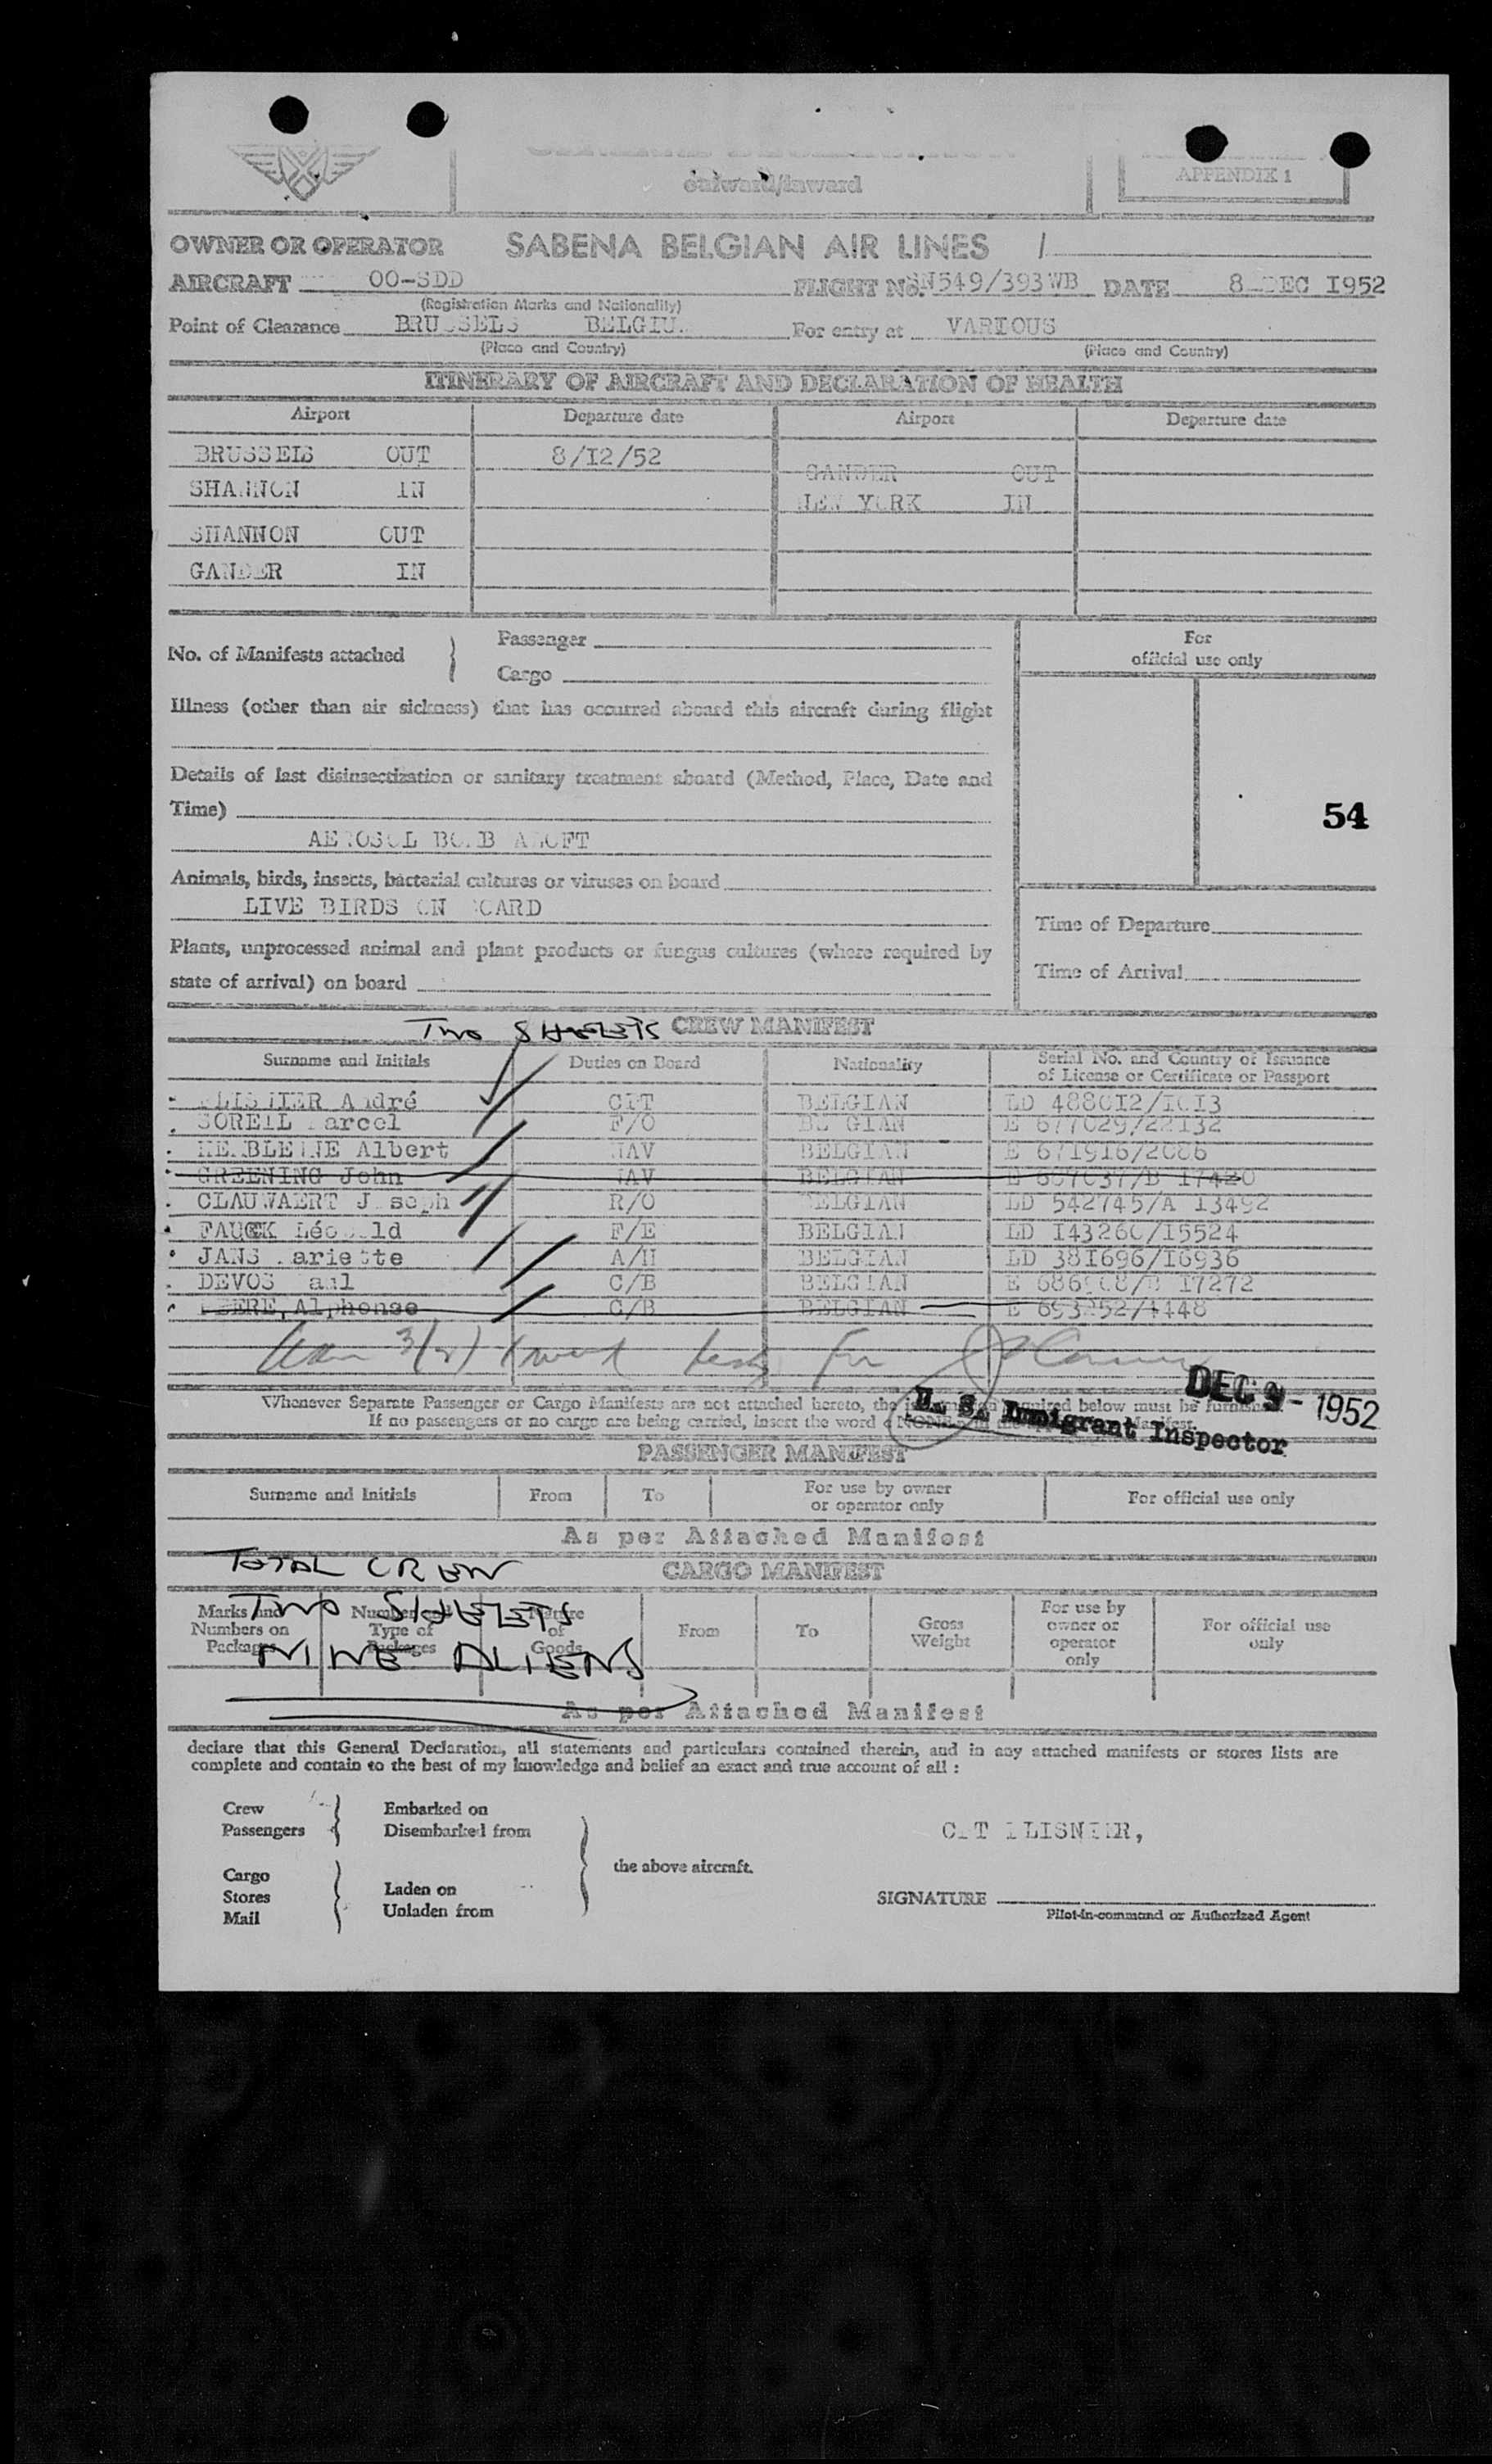 outward/inward
APPENDIX 1
OWNER OR OPERATOR SABENA BELGIAN AIR LINES /
AIRCRAFT OO-SDD FLIGHT No. SN549/393WB DATE 8 DEC 1952
(Registration Marks and Nationality)
Point of Clearance BRUSSELS BELGIU. For entry at VARIOUS
(Place and Country) (Place and Country)
ITINERARY OF AIRCRAFT AND DECLARATION OF HEALTH
Airport Departure date Airport Departure date
BRUSSELS OUT 8/I2/52 GANDER OUT
SHANNON IN NEW YORK IN
SHANNON OUT
GANDER IN
No. of Manifests attached } Passenger
Cargo
For
official use only
Illness (other than air sickness) that has occurred aboard this aircraft during flight
Details of last disinsectization or sanitary treatment aboard (Method, Place, Date and
Time)
54
AEROSOL BOMB ALOFT
Animals, birds, insects, bacterial cultures or viruses on board
LIVE BIRDS ON BOARD
Time of Departure
Plants, unprocessed animal and plant products or fungus cultures (where required by
state of arrival) on board
Time of Arrival
TWO SHEETS CREW MANIFEST
Surname and Initials Duties on Board Nationality Serial No. and Country of Issuance
of License or Certificate or Passport
PLISNIER André CPT BELGIAN LD 488012/1013
SOREIL Marcel F/O BELGIAN E 677029/22132
Albert NAV BELGIAN E 671916/2086
GREENING John NAV BELGIAN E 607037/B 17420
CLAUWAERT Joseph R/O BELGIAN LD 542745/A 13492
FAUCK Léopold F/E BELGIAN LD I43260/I5524
JANS Mariette A/H BELGIAN LD 38I696/I6936
DEVOS Paul C/B BELGIAN E 17272
Alphonse C/B BELGIAN 4448
DEC 9 - 1952
Whenever Separate Passenger or Cargo Manifests are not attached hereto, the information required below must be furnished.
If no passengers or no cargo are being carried, insert the word « NONE » in the Manifest.
U. S. Immigrant Inspector
PASSENGER MANIFEST
Surname and Initials From To For use by owner
or operator only For official use only
As per Attached Manifest
TOTAL CREW
CARGO MANIFEST
TWO SHEETS
NINE ALIENS
Marks and
Numbers on
Packages Number and
Type of
Packages Nature
of
Goods From To Gross
Weight For use by
owner or
operator
only For official use
only
As per Attached Manifest
declare that this General Declaration, all statements and particulars contained therein, and in any attached manifests or stores lists are
complete and contain to the best of my knowledge and belief an exact and true account of all :
Crew
Passengers } Embarked on
Disembarked from
CPT PLISNIER,
the above aircraft.
Cargo
Stores
Mail } Laden on
Unladen from
SIGNATURE
Pilot-in-command or Authorized Agent